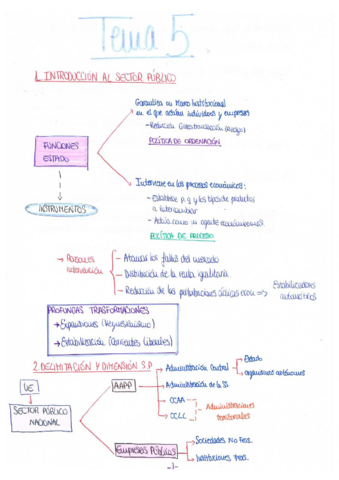 Tema 5
1. INTRODUCCIÓN AL SECTOR PÚBLICO
Garantiza un Marco Institucional
en el que actúan individuos y empresas
POLÍTICA DE ORDENACIÓN
FUNCIONES
ESTADO
INSTRUMENTOS
Interviene en los procesos económicos:
- Establece p, q y los tipos de productos
a intercambiar
- Actúa como un agente económico
POLÍTICA DE PROCESO
→ Razones
intervención
- Atenuar los fallos del mercado
- Distribución de la renta igualitaria
- Reducción de las perturbaciones cíclicas econ ⇒ Estabilizadores
automáticos
PROFUNDAS TRASFORMACIONES
→ Expansiones (Keynesianismo)
→ Estabilización (Corrientes Liberales)
2. DELIMITACIÓN Y DIMENSIÓN S.P
UE
SECTOR PÚBLICO
NACIONAL
AAPP
Administración Central
Estado
organismos autónomos
Administración de la SS
CCAA
CCLL
Administraciones
territoriales
Empresas Públicas
Sociedades No Fin.
Instituciones Fin.
-1-